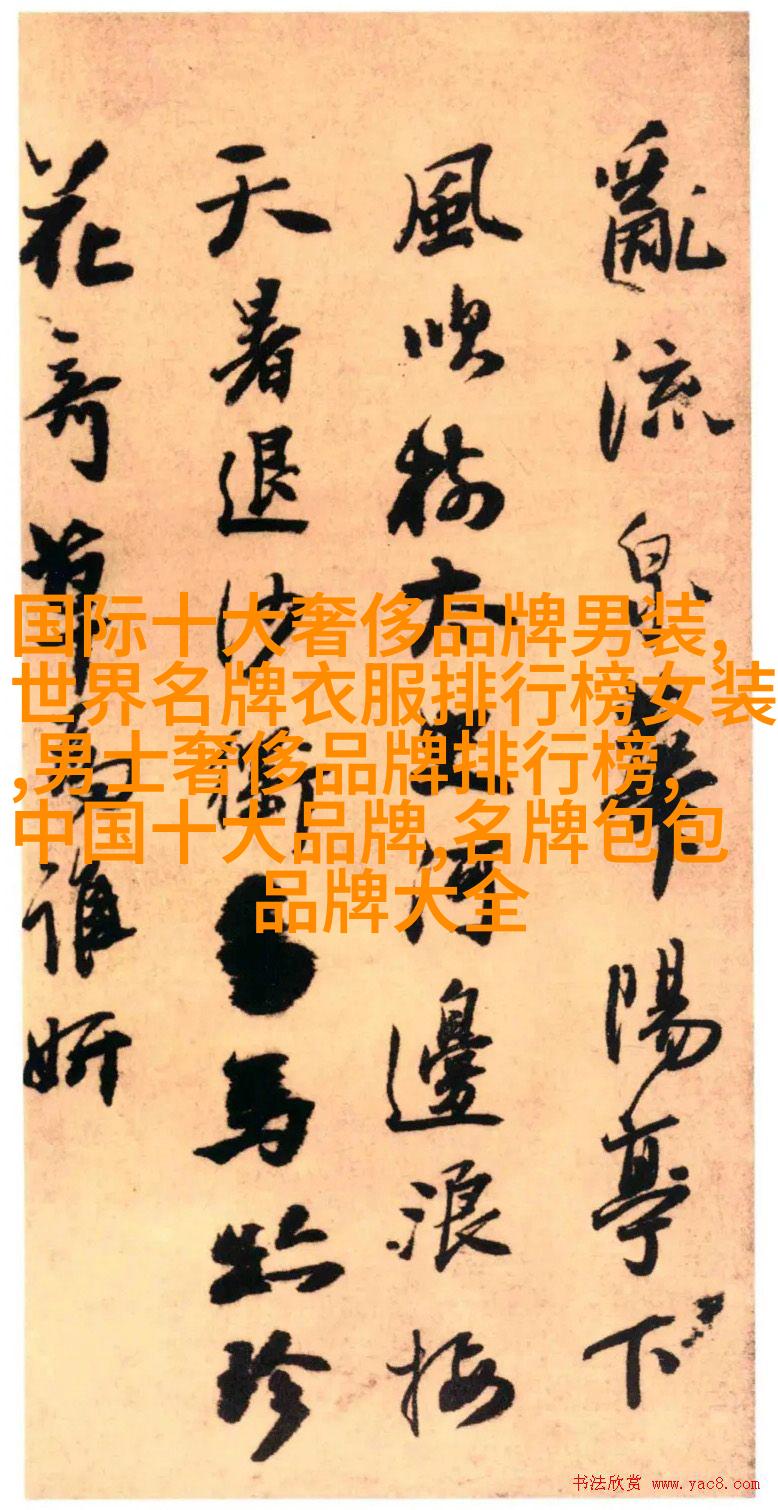 亂流華陽亭下
風吹河邊浪接
天暑退沙馬珍
花奇草誰妍
国际十大奢侈品牌男装,
世界名牌衣服排行榜女装
,男士奢侈品牌排行榜,
中国十大品牌,名牌包包
品牌大全
书法欣赏 www.yac8.com